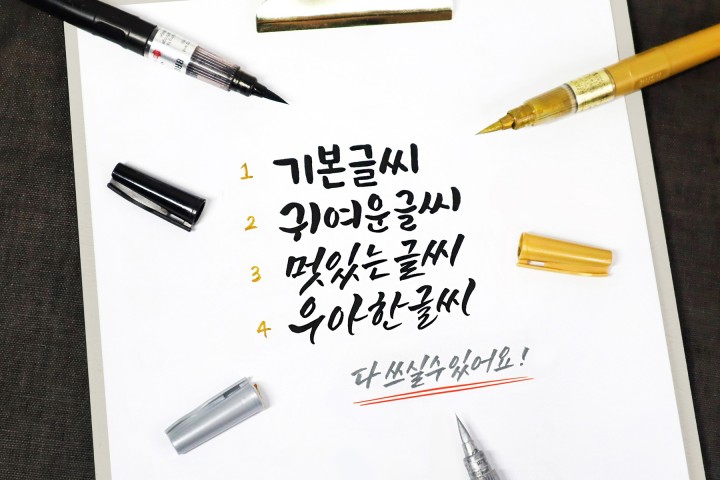 1 기본글씨
2 귀여운글씨
3 멋있는글씨
4 우아한글씨
다 쓰실수있어요!